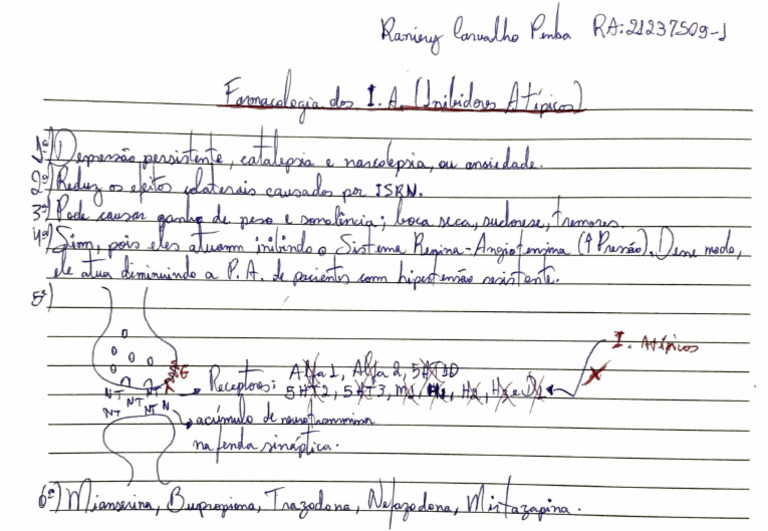 Raniery Carvalho Penba RA:21237509-1
Farmacologia dos I.A. (Inibidores Atípicos)
1º) Depressão persistente, catalepsia e narcolepsia, ou ansiedade.
2º) Reduz os efeitos colaterais causados por ISRN.
3º) Pode causar ganho de peso e sonolência; boca seca, sudorese, tremores.
4º) Sim, pois eles atuam inibindo o Sistema Regina-Angiotensina (↑ Pressão). Desse modo,
ele atua diminuindo a P.A. de pacientes com hipertensão resistente.
5º)
I. Atípicos
G
R
Receptores: Alfa 1, Alfa 2, 5HT1D
5HT2, 5HT3, M1, H1, H2, H3 e D1
NT NT NT
NT NT N
acúmulo de neurotransmissor
na fenda sináptica.
6º) Mianserina, Bupropiona, Trazodona, Nefazodona, Mirtazapina.